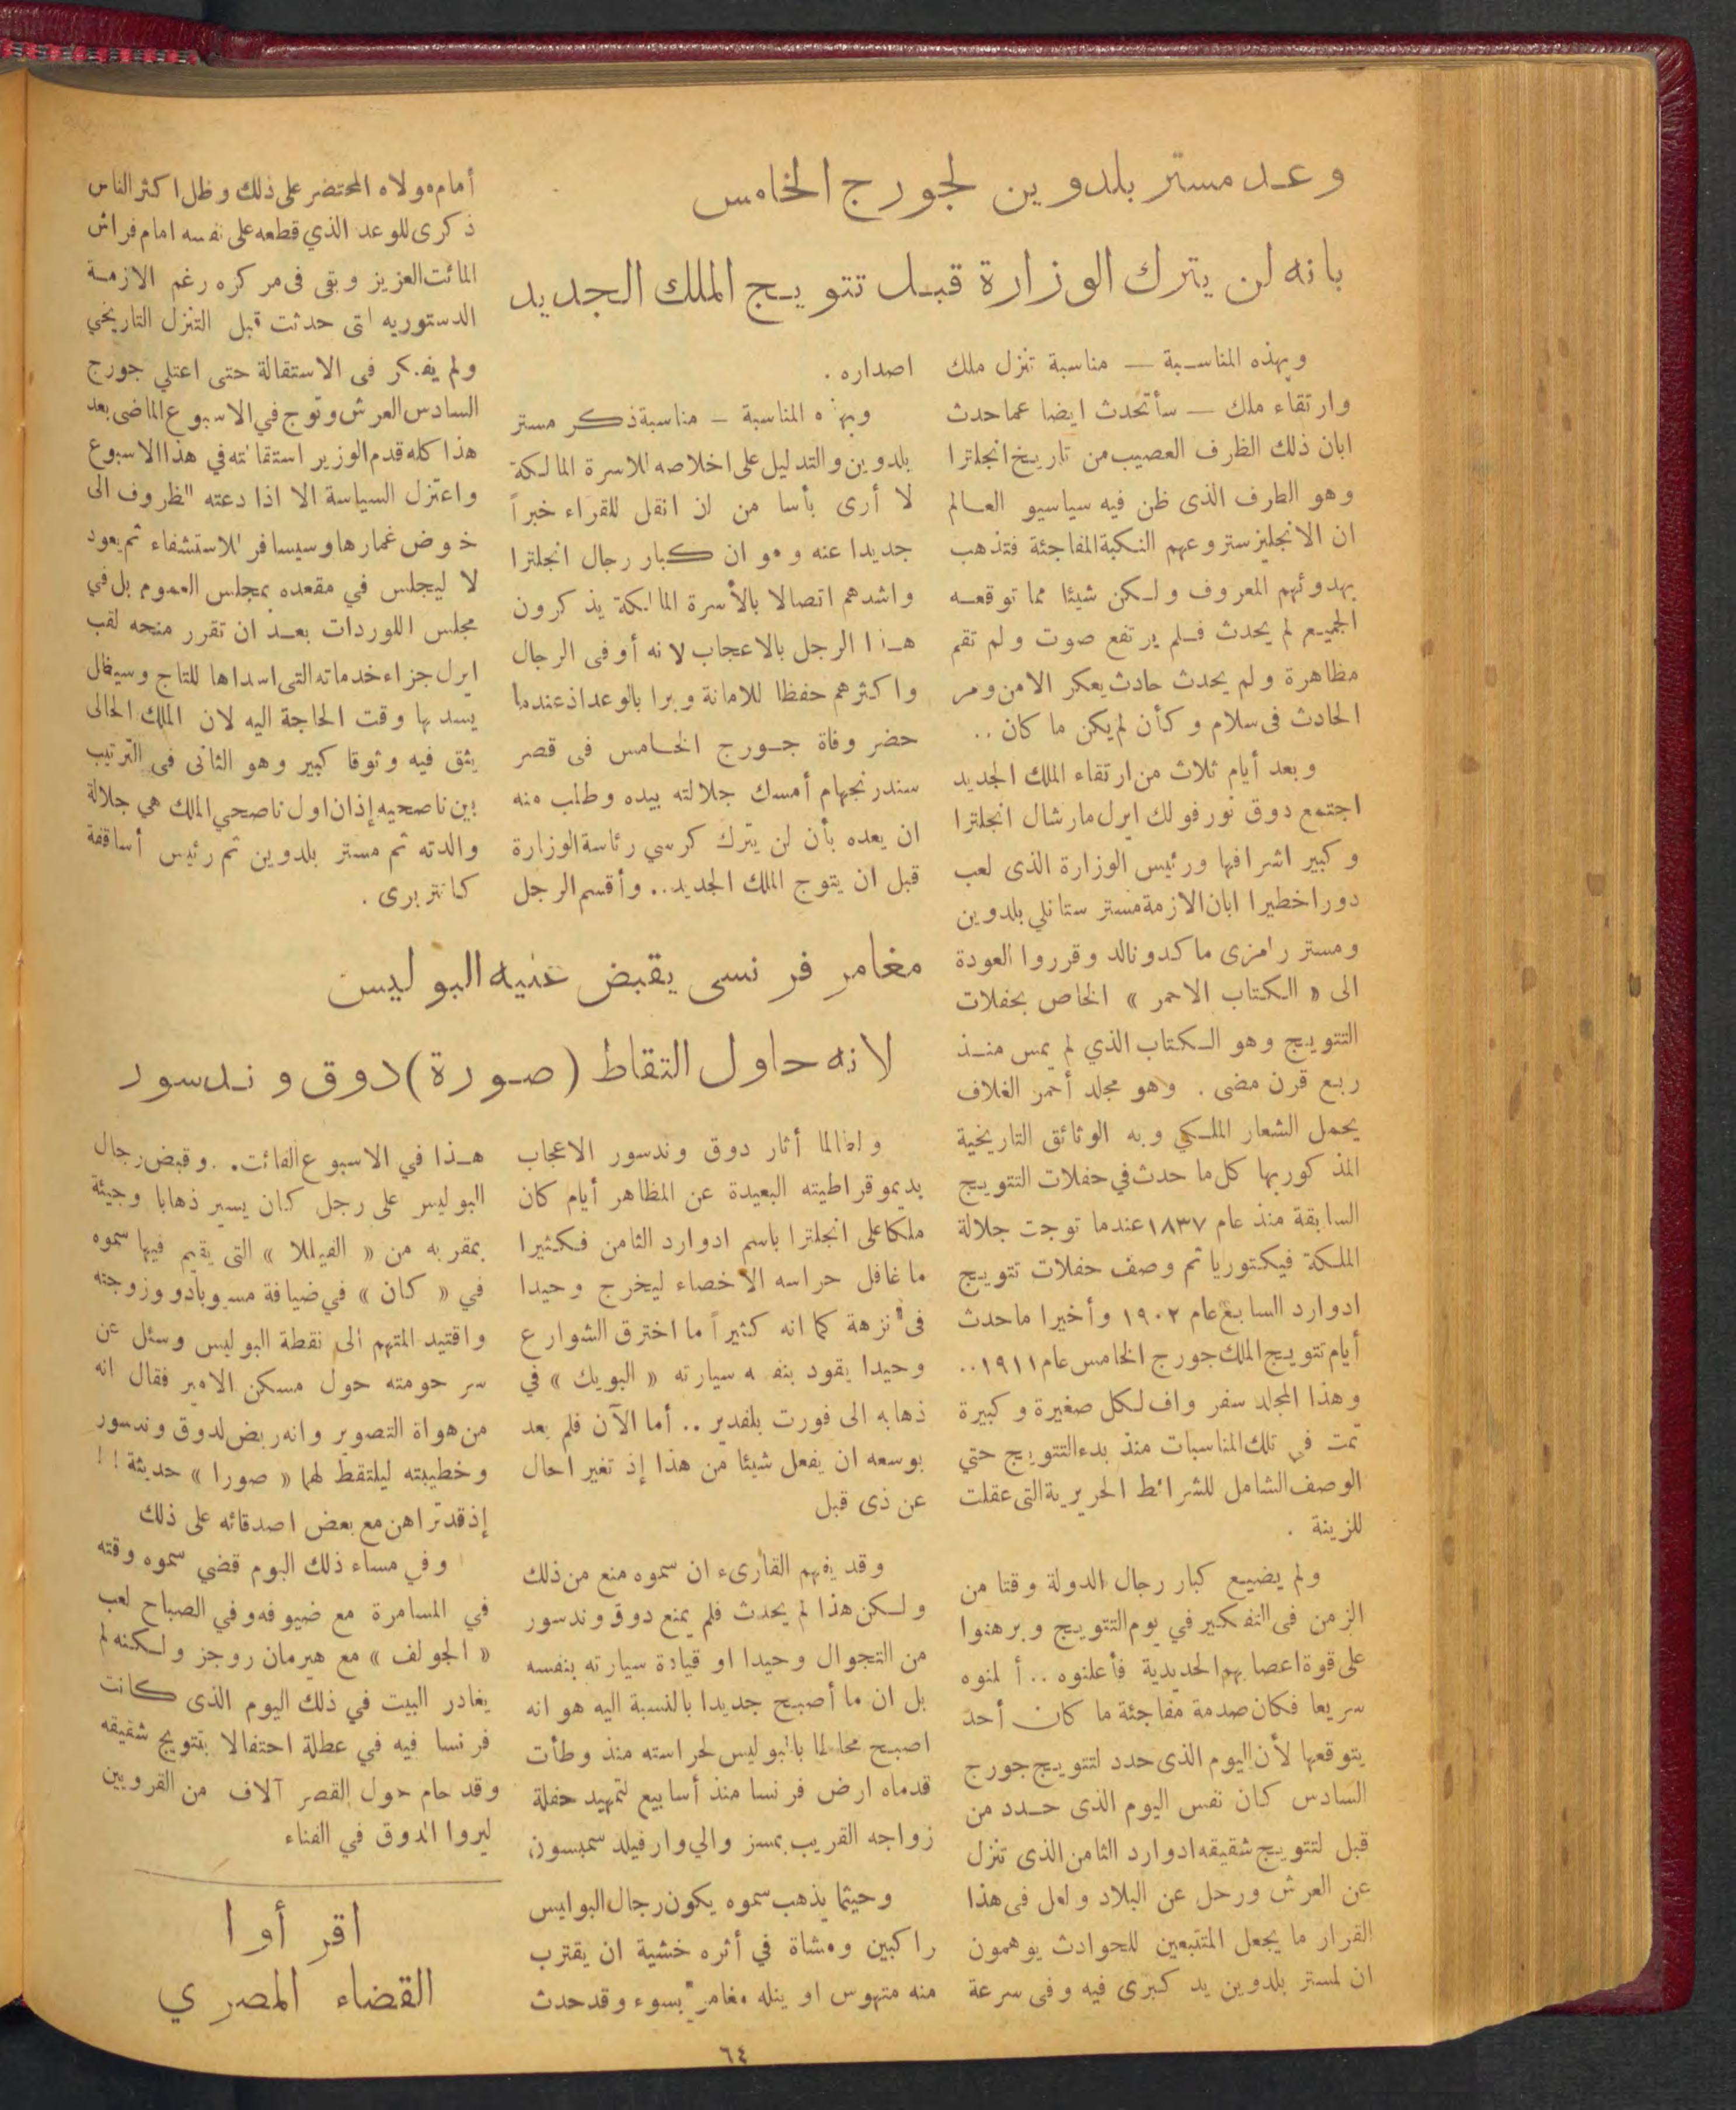 وعد مستر بلدوين لجورج الخامس
بانه لن يترك الوزارة قبل تتويج الملك الجديد
وبهذه المناسبة — مناسبة تنزل ملك
وارتقاء ملك — سأتحدث ايضا عما حدث
ابان ذلك الظرف العصيب من تاريخ انجلترا
وهو الظرف الذى ظن فيه سياسيو العالم
ان الانجليز ستروعهم النكبة المفاجئة فتذهب
بهدوئهم المعروف ولكن شيئا مما توقعه
الجميع لم يحدث فلم يرتفع صوت ولم تقم
مظاهرة ولم يحدث حادث يعكر الامن ومر
الحادث فى سلام وكأن لم يكن ما كان ..
وبعد أيام ثلاث من ارتقاء الملك الجديد
اجتمع دوق نورفولك ايرل مارشال انجلترا
وكبير اشرافها ورئيس الوزارة الذى لعب
دورا خطيرا ابان الازمة مستر ستانلي بلدوين
ومستر رامزى ماكدونالد وقرروا العودة
الى « الكتاب الاحمر » الخاص بحفلات
التتويج وهو الكتاب الذي لم يمس منذ
ربع قرن مضى . وهو مجلد أحمر الغلاف
يحمل الشعار الملكي وبه الوثائق التاريخية
المذكور بها كل ما حدث في حفلات التتويج
السابقة منذ عام ١٨٣٧ عندما توجت جلالة
الملكة فيكتوريا ثم وصف حفلات تتويج
ادوارد السابع عام ١٩٠٢ وأخيرا ما حدث
أيام تتويج الملك جورج الخامس عام ١٩١١..
وهذا المجلد سفر واف لكل صغيرة وكبيرة
تمت في تلك المناسبات منذ بدء التتويج حتي
الوصف الشامل للشرائط الحريرية التى عقلت
للزينة .
ولم يضيع كبار رجال الدولة وقتا من
الزمن فى التفكير في يوم التتويج وبرهنوا
على قوة اعصابهم الحديدية فأعلنوه .. أ لمنوه
سريعا فكان صدمة مفاجئة ما كان أحد
يتوقعها لأن اليوم الذى حدد لتتويج جورج
السادس كان نفس اليوم الذى حدد من
قبل لتتويج شقيقه ادوارد الثامن الذى تنزل
عن العرش ورحل عن البلاد ولعل فى هذا
القرار ما يجعل المتتبعين للحوادث يوهمون
ان لمستر بلدوين يد كبرى فيه وفى سرعة
اصداره .
وبهذه المناسبة - مناسبة ذكر مستر
بلدوين والتدليل على اخلاصه للاسرة المالكة
لا أرى بأسا من ان انقل للقراء خبراً
جديدا عنه وهو ان كبار رجال انجلترا
واشدهم اتصالا بالأسرة المالكة يذكرون
هذا الرجل بالاعجاب لانه أوفى الرجال
واكثرهم حفظا للامانة وبرا بالوعد اذ عندما
حضر وفاة جورج الخامس فى قصر
سندرنجهام أمسك جلالته بيده وطلب منه
ان يعده بأن لن يترك كرسي رئاسة الوزارة
قبل ان يتوج الملك الجديد.. وأقسم الرجل
أمام مولاه المحتضر على ذلك وظل اكثر الناس
ذكرى للوعد الذي قطعه على نفسه امام فراش
المائت العزيز وبقى فى مركزه رغم الازمة
الدستوريه التى حدثت قبل التنزل التاريخي
ولم يفكر فى الاستقالة حتى اعتلي جورج
السادس العرش وتوج في الاسبوع الماضى بعد
هذا كله قدم الوزير استقالته في هذا الاسبوع
واعتزل السياسة الا اذا دعته الظروف الى
خوض غمارها وسيسافر للاستشفاء ثم يعود
لا ليجلس في مقعده بمجلس العموم بل في
مجلس اللوردات بعد ان تقرر منحه لقب
ايرل جزاء خدماته التى اسداها للتاج وسيظل
يسديها وقت الحاجة اليه لان الملك الحالى
يثق فيه وثوقا كبير وهو الثانى فى الترتيب
بين ناصحيه إذ ان اول ناصحي الملك هي جلالة
والدته ثم مستر بلدوين ثم رئيس أساقفة
كانتربرى .
مغامر فرنسى يقبض عليه البوليس
لانه حاول التقاط (صورة) دوق وندسور
ولطالما أثار دوق وندسور الاعجاب
بديموقراطيته البعيدة عن المظاهر أيام كان
ملكا على انجلترا باسم ادوارد الثامن فكثيرا
ما غافل حراسه الاخصاء ليخرج وحيدا
فى نزهة كما انه كثيراً ما اخترق الشوارع
وحيدا يقود بنفسه سيارته « البويك » في
ذهابه الى فورت بلفدير .. أما الآن فلم يعد
بوسعه ان يفعل شيئا من هذا إذ تغير الحال
عن ذى قبل
وقد يفهم القارىء ان سموه منع من ذلك
ولكن هذا لم يحدث فلم يمنع دوق وندسور
من التجوال وحيدا او قيادة سيارته بنفسه
بل ان ما أصبح جديدا بالنسبة اليه هو انه
اصبح محاطا بالبوليس لحراسته منذ وطأت
قدماه ارض فرنسا منذ أسابيع لتمهيد حفلة
زواجه القريب بمسز والي وارفيلد سمبسون
وحيثما يذهب سموه يكون رجال البوليس
راكبين ومشاة في أثره خشية ان يقترب
منه متهوس او يناله مغامر بسوء وقد حدث
هذا في الاسبوع الفائت. . وقبض رجال
البوليس على رجل كان يسير ذهابا وجيئة
بمقربه من « الفيللا » التى يقيم فيها سموه
في « كان » في ضيافة مسيو بادو وزوجته
واقتيد المتهم الى نقطة البوليس وسئل عن
سر حومته حول مسكن الامير فقال انه
من هواة التصوير وانه ربض لدوق وندسور
وخطيبته ليلتقط لهما « صورا » حديثة ! !
إذ قد تراهن مع بعض اصدقائه على ذلك
وفي مساء ذلك اليوم قضي سموه وقته
في المسامرة مع ضيوفه وفي الصباح لعب
« الجولف » مع هيرمان روجز ولكنه لم
يغادر البيت في ذلك اليوم الذى كانت
فرنسا فيه في عطلة احتفالا بتتويج شقيقه
وقد حام حول القصر آلاف من القرويين
ليروا الدوق في الفناء
اقرأوا
القضاء المصري
٦٤